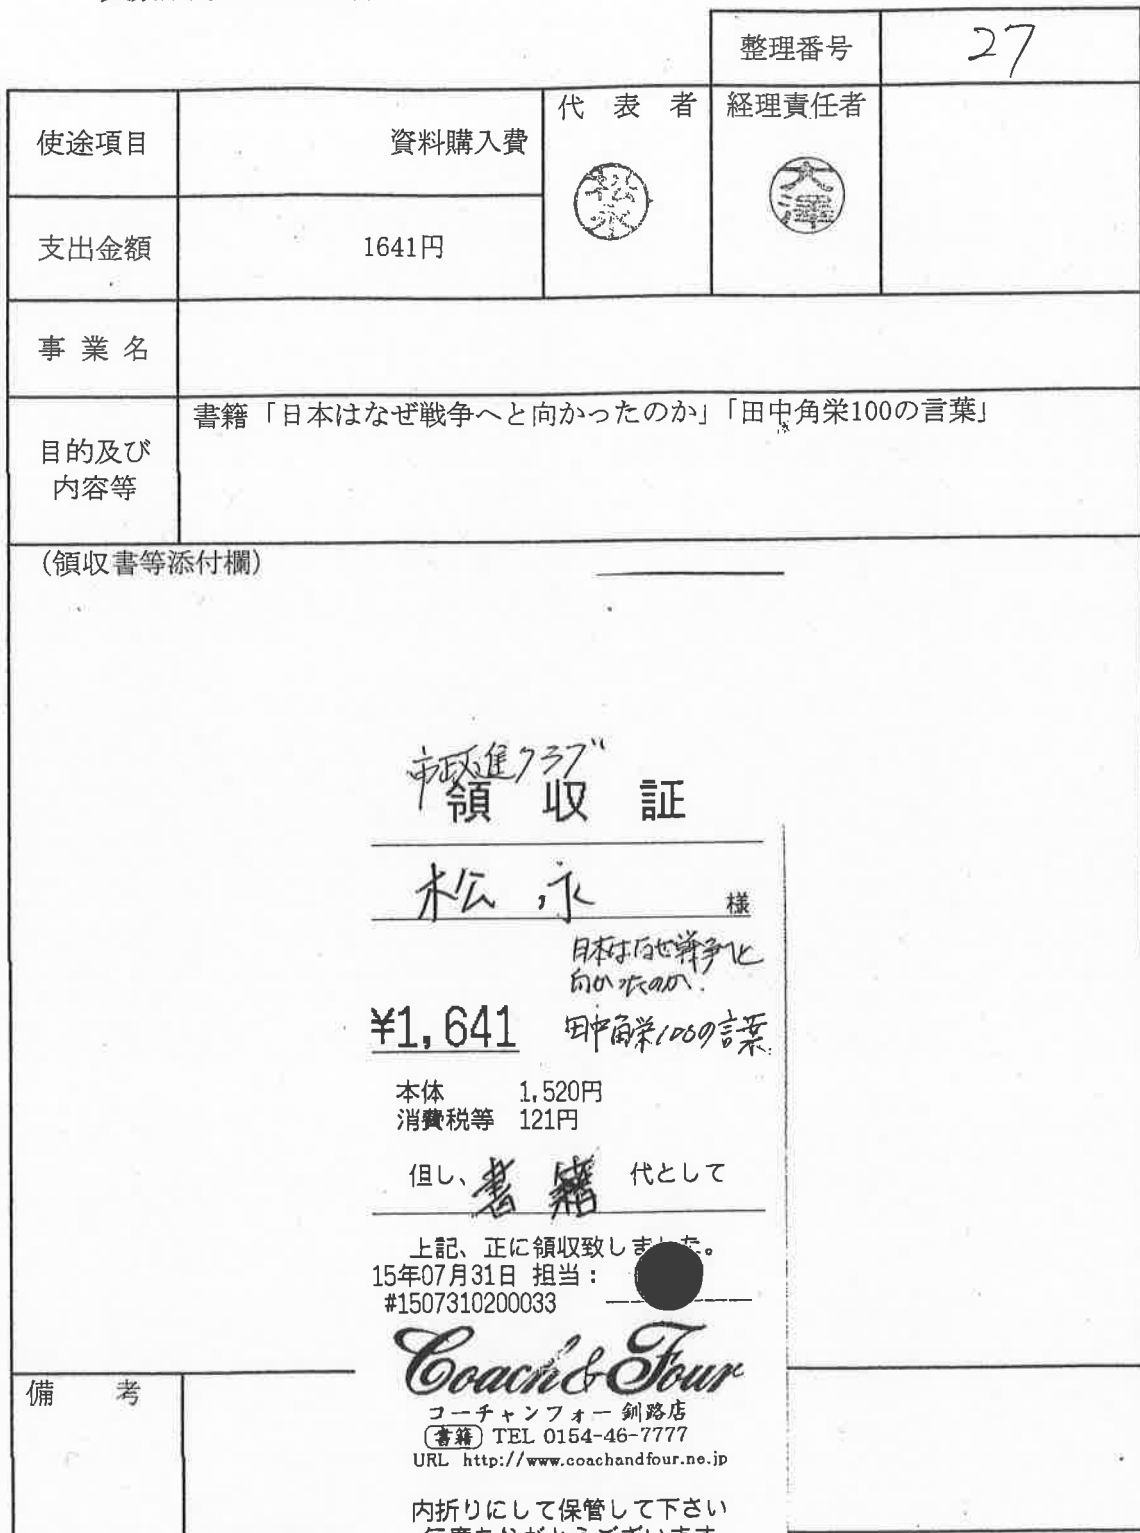 整理番号 27
使途項目 資料購入費 代表者 経理責任者
松永 大澤
支出金額 1641円
事業名
目的及び内容等 書籍「日本はなぜ戦争へと向かったのか」「田中角栄100の言葉」
(領収書等添付欄)
市政進クラブ
領収証
松永 様
日本はなぜ戦争へと
向かったのか.
¥1,641 田中角栄100の言葉
本体 1,520円
消費税等 121円
但し、書籍 代として
上記、正に領収致しました。
15年07月31日 担当:
#1507310200033
Coach & Four
コーチャンフォー 釧路店
書籍 TEL 0154-46-7777
URL http://www.coachandfour.ne.jp
備考
内折りにして保管して下さい